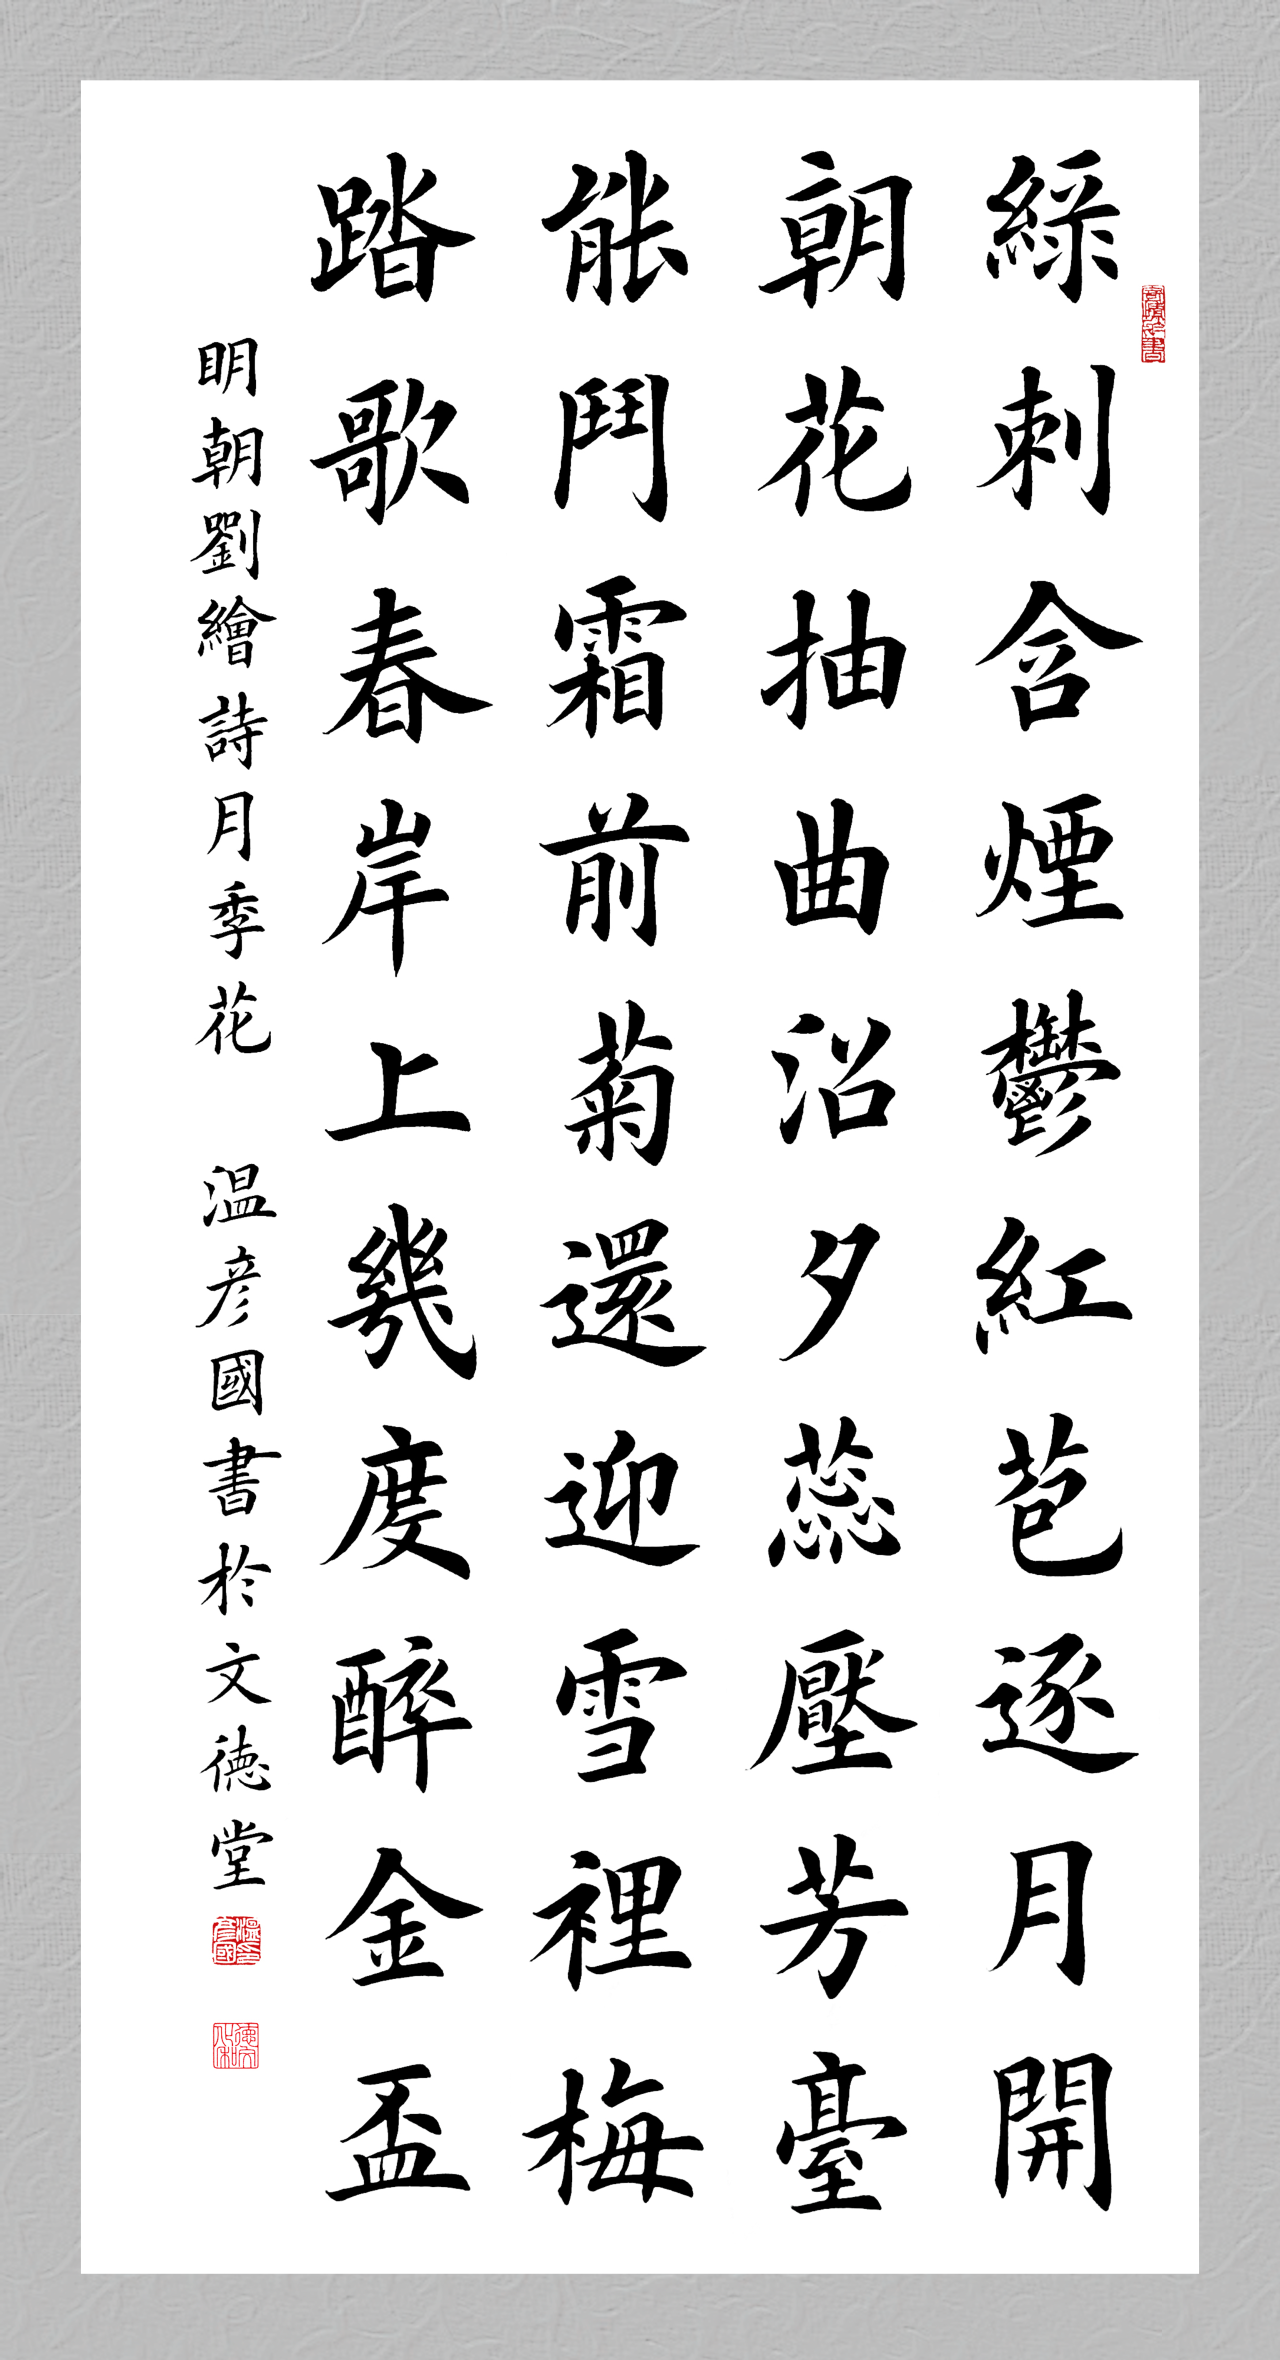 綠刺含煙鬱紅苞逐月開
朝花抽曲沼夕蕊壓芳臺
能鬥霜前菊還迎雪裡梅
踏歌春岸上幾度醉金盃
明朝劉繪詩月季花　温彥國書於文德堂